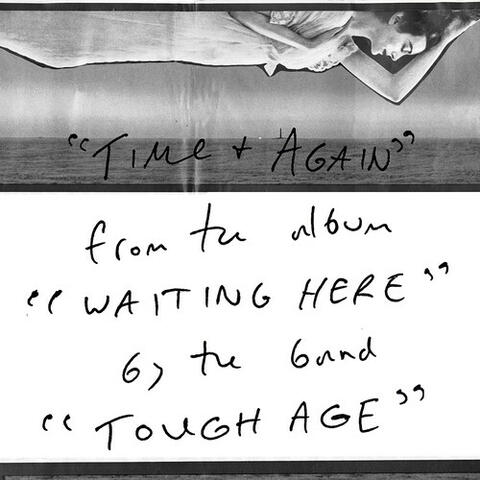 "TIME + AGAIN"
from the album
"WAITING HERE"
by the band
"TOUGH AGE"